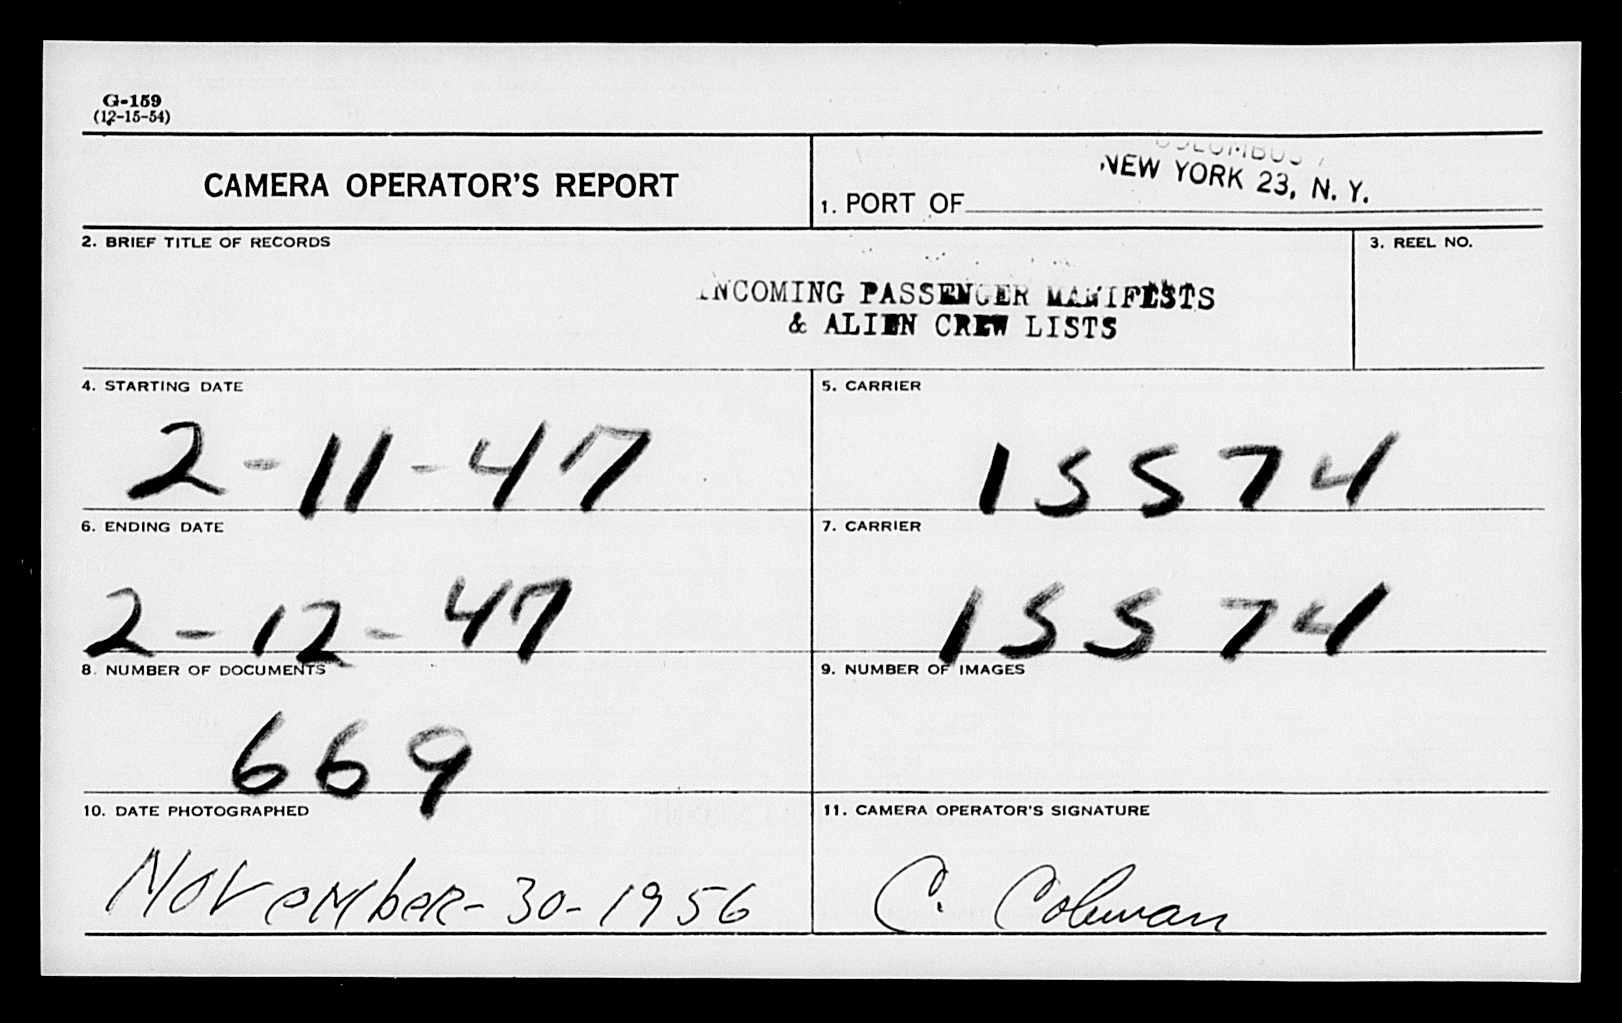 G-159
(12-15-54)
CAMERA OPERATOR'S REPORT
1. PORT OF
NEW YORK 23, N. Y.
2. BRIEF TITLE OF RECORDS
INCOMING PASSENGER MANIFESTS
& ALIEN CREW LISTS
3. REEL NO.
4. STARTING DATE
2-11-47
5. CARRIER
15574
6. ENDING DATE
2-12-47
7. CARRIER
15574
8. NUMBER OF DOCUMENTS
669
9. NUMBER OF IMAGES
10. DATE PHOTOGRAPHED
November-30-1956
11. CAMERA OPERATOR'S SIGNATURE
C. Coleman